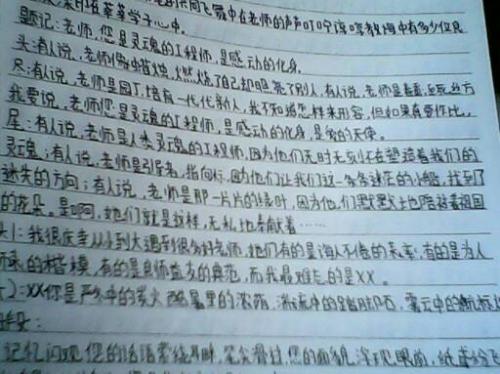 题记:老师,您是灵魂的工程师,是感动的化身。
头:有人说,老师像蜡烛,燃烧了自己却照亮了别人,有人说,老师是春蚕,
有人说,老师是园丁,培育一代代新人,我不知道怎样来形容,但如果有要作比,
我要说,老师您是灵魂的工程师,是感动的化身,是爱的天使。
尾:有人说,老师是人类灵魂的工程师,因为他们无时无刻不在塑造着我们的
灵魂;有人说,老师是引导者,指向标,因为他们让我们这一条条迷茫的小船,找到了
迷失的方向;有人说,老师是那一片片的绿叶,因为他们默默地陪衬着祖国
的花朵。是啊,她们就是这样,无私地奉献着……
1:我很庆幸从小到大遇到很多好老师,她们有的是诲人不倦的 有的是为人
师表的楷模,有的是良师益友的典范,而我最难忘的是XX。
2):XX你是严冬中的炭火 酷暑里的浓荫,湍流中的踏脚石,雾云中的航标
记忆闪现 您的话语萦绕耳畔,笔尖滑过,您的面貌浮现眼前,